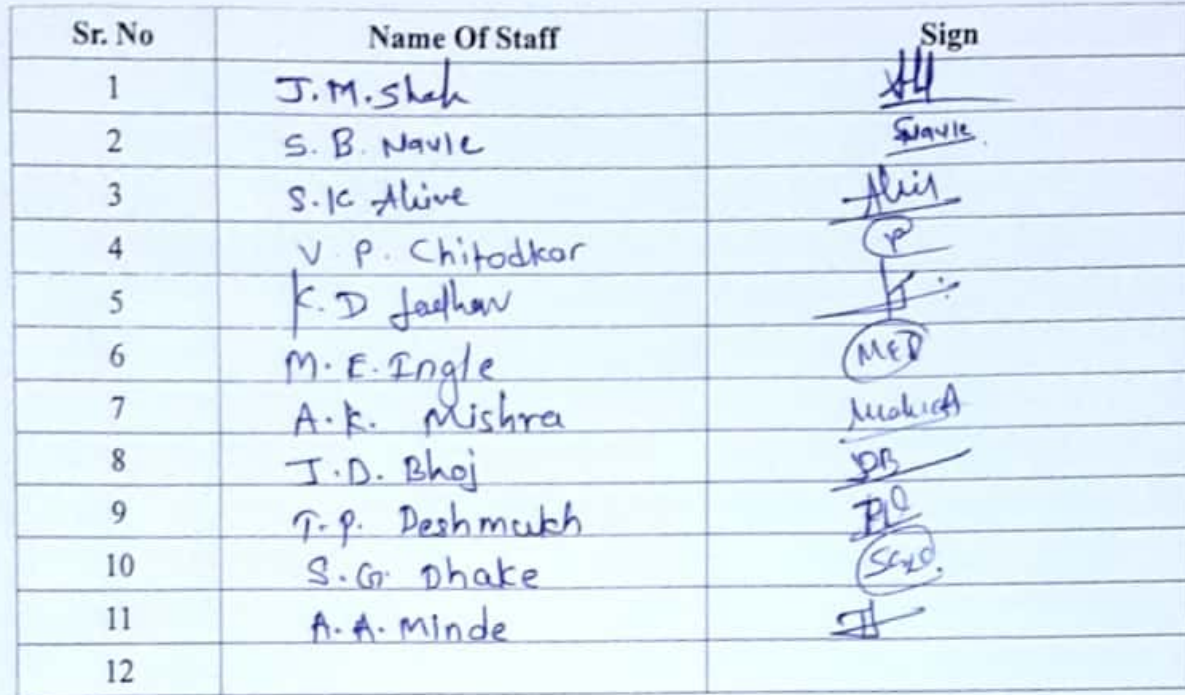 Sr. No Name Of Staff Sign
1 J.M.Shah
2 S. B. Navle Snavle
3 S.K Ahire
4 V. P. Chitodkar P
5 K. D Jadhav
6 M. E. Ingle MED
7 A. K. Mishra
8 J. D. Bhoj JDB
9 T. P. Deshmukh
10 S. G. Dhake
11 A. A. Minde
12